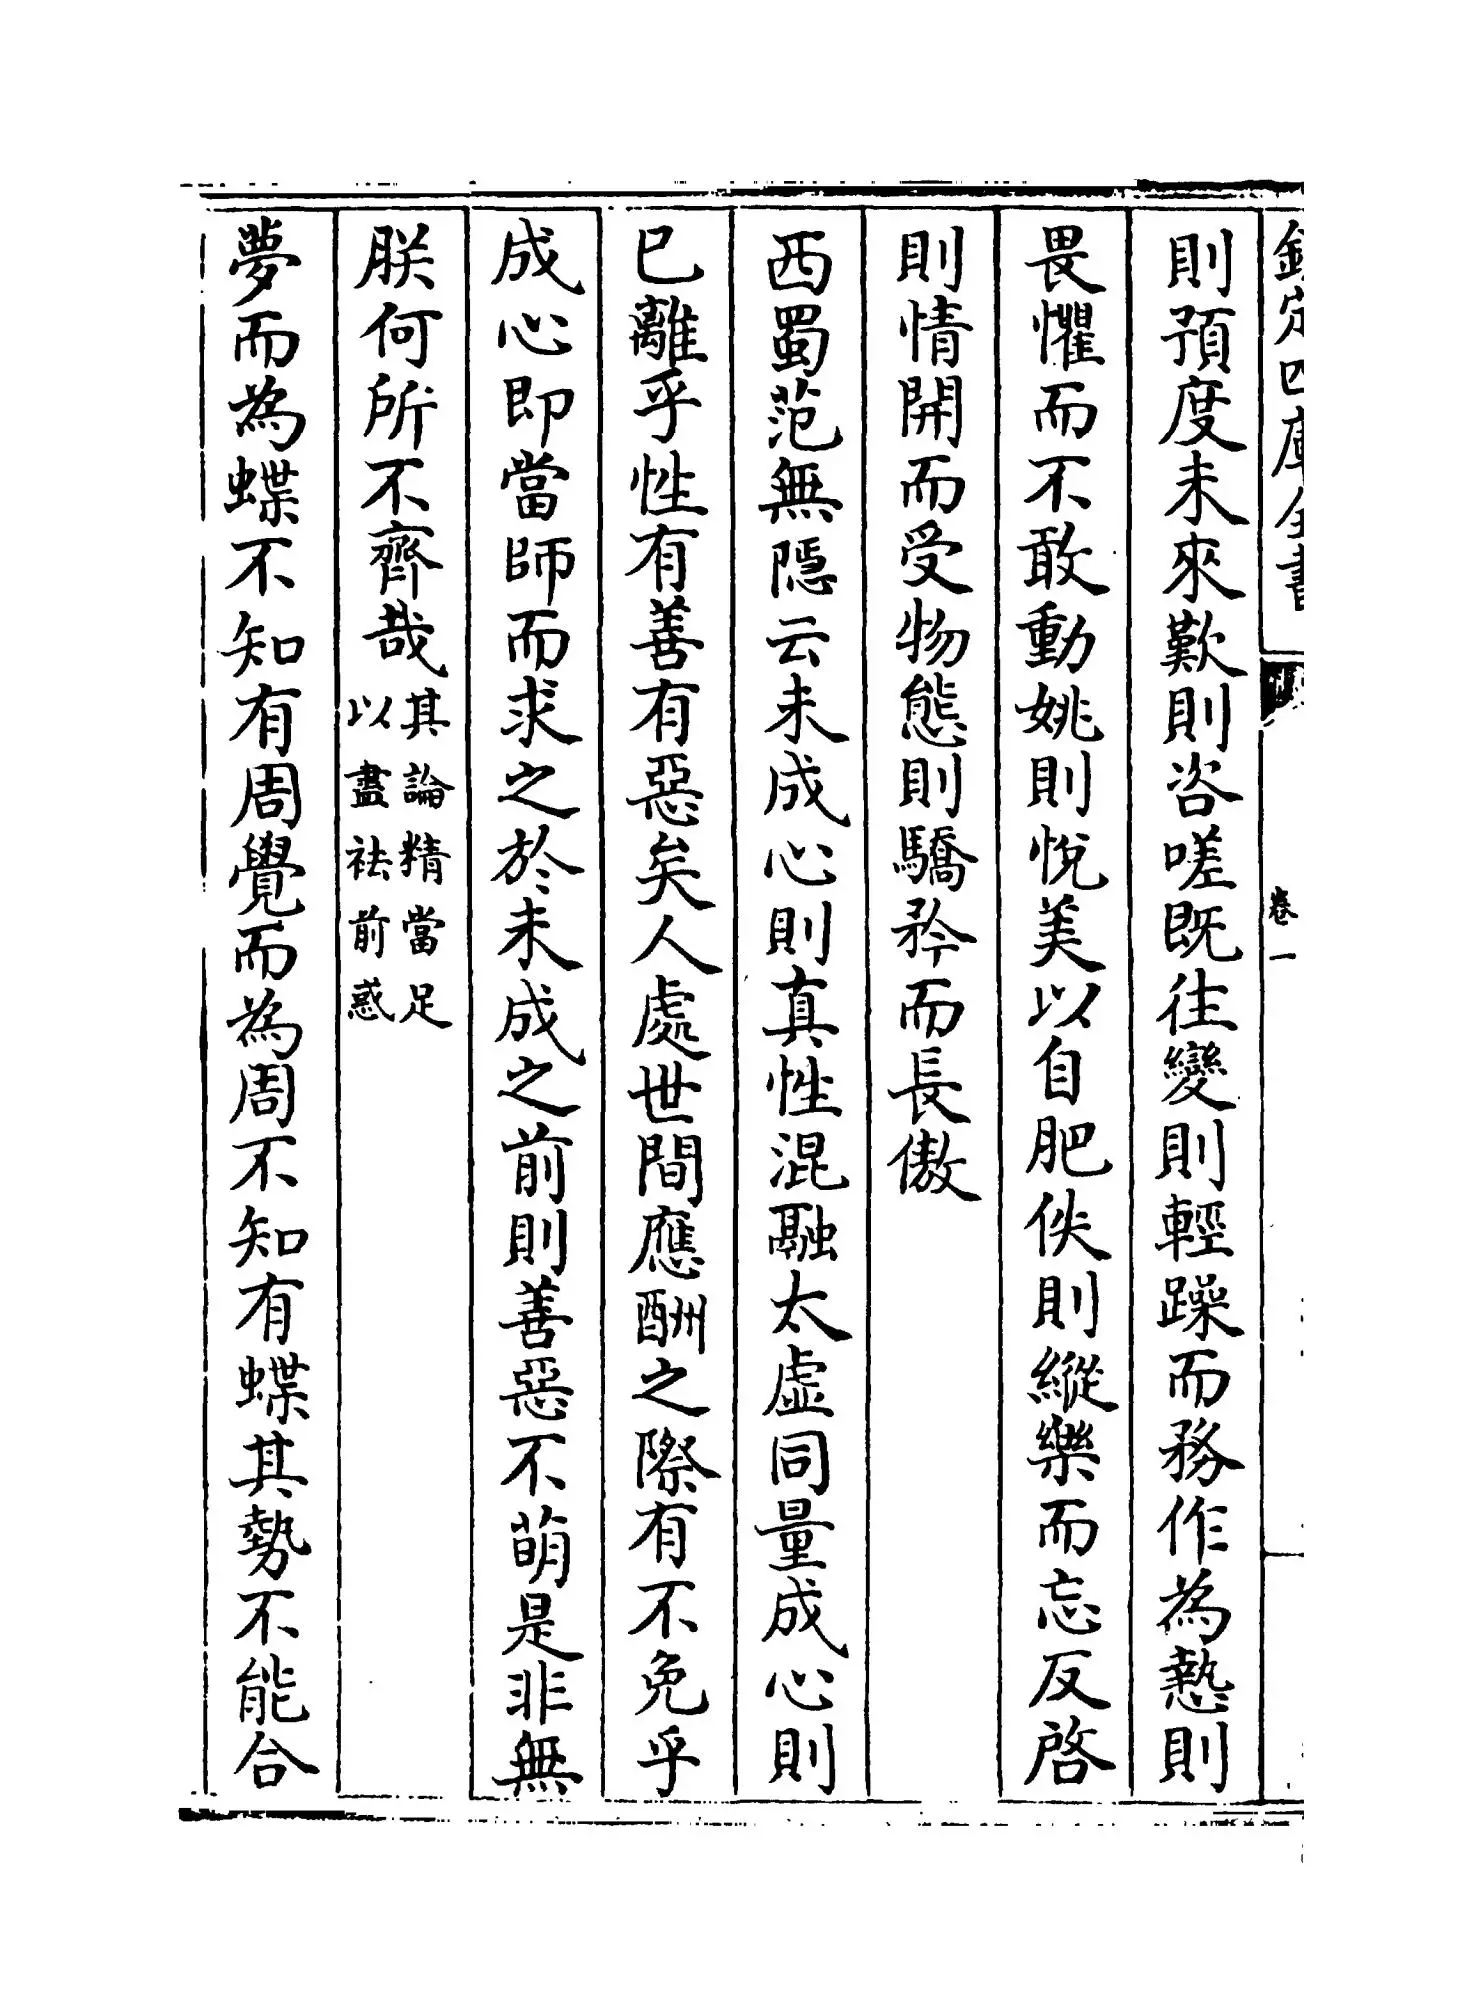 欽定四庫全書
卷一
則預度未來歎則咨嗟既往變則輕躁而務作為慹則
畏懼而不敢動姚則悅美以自肥佚則縱樂而忘反啓
則情開而受物態則驕矜而長傲
西蜀范無隱云未成心則真性混融太虛同量成心則
已離乎性有善有惡矣人處世間應酬之際有不免乎
成心即當師而求之於未成之前則善惡不萌是非無
朕何所不齊哉其論精當足
以盡祛前惑
夢而為蝶不知有周覺而為周不知有蝶其勢不能合